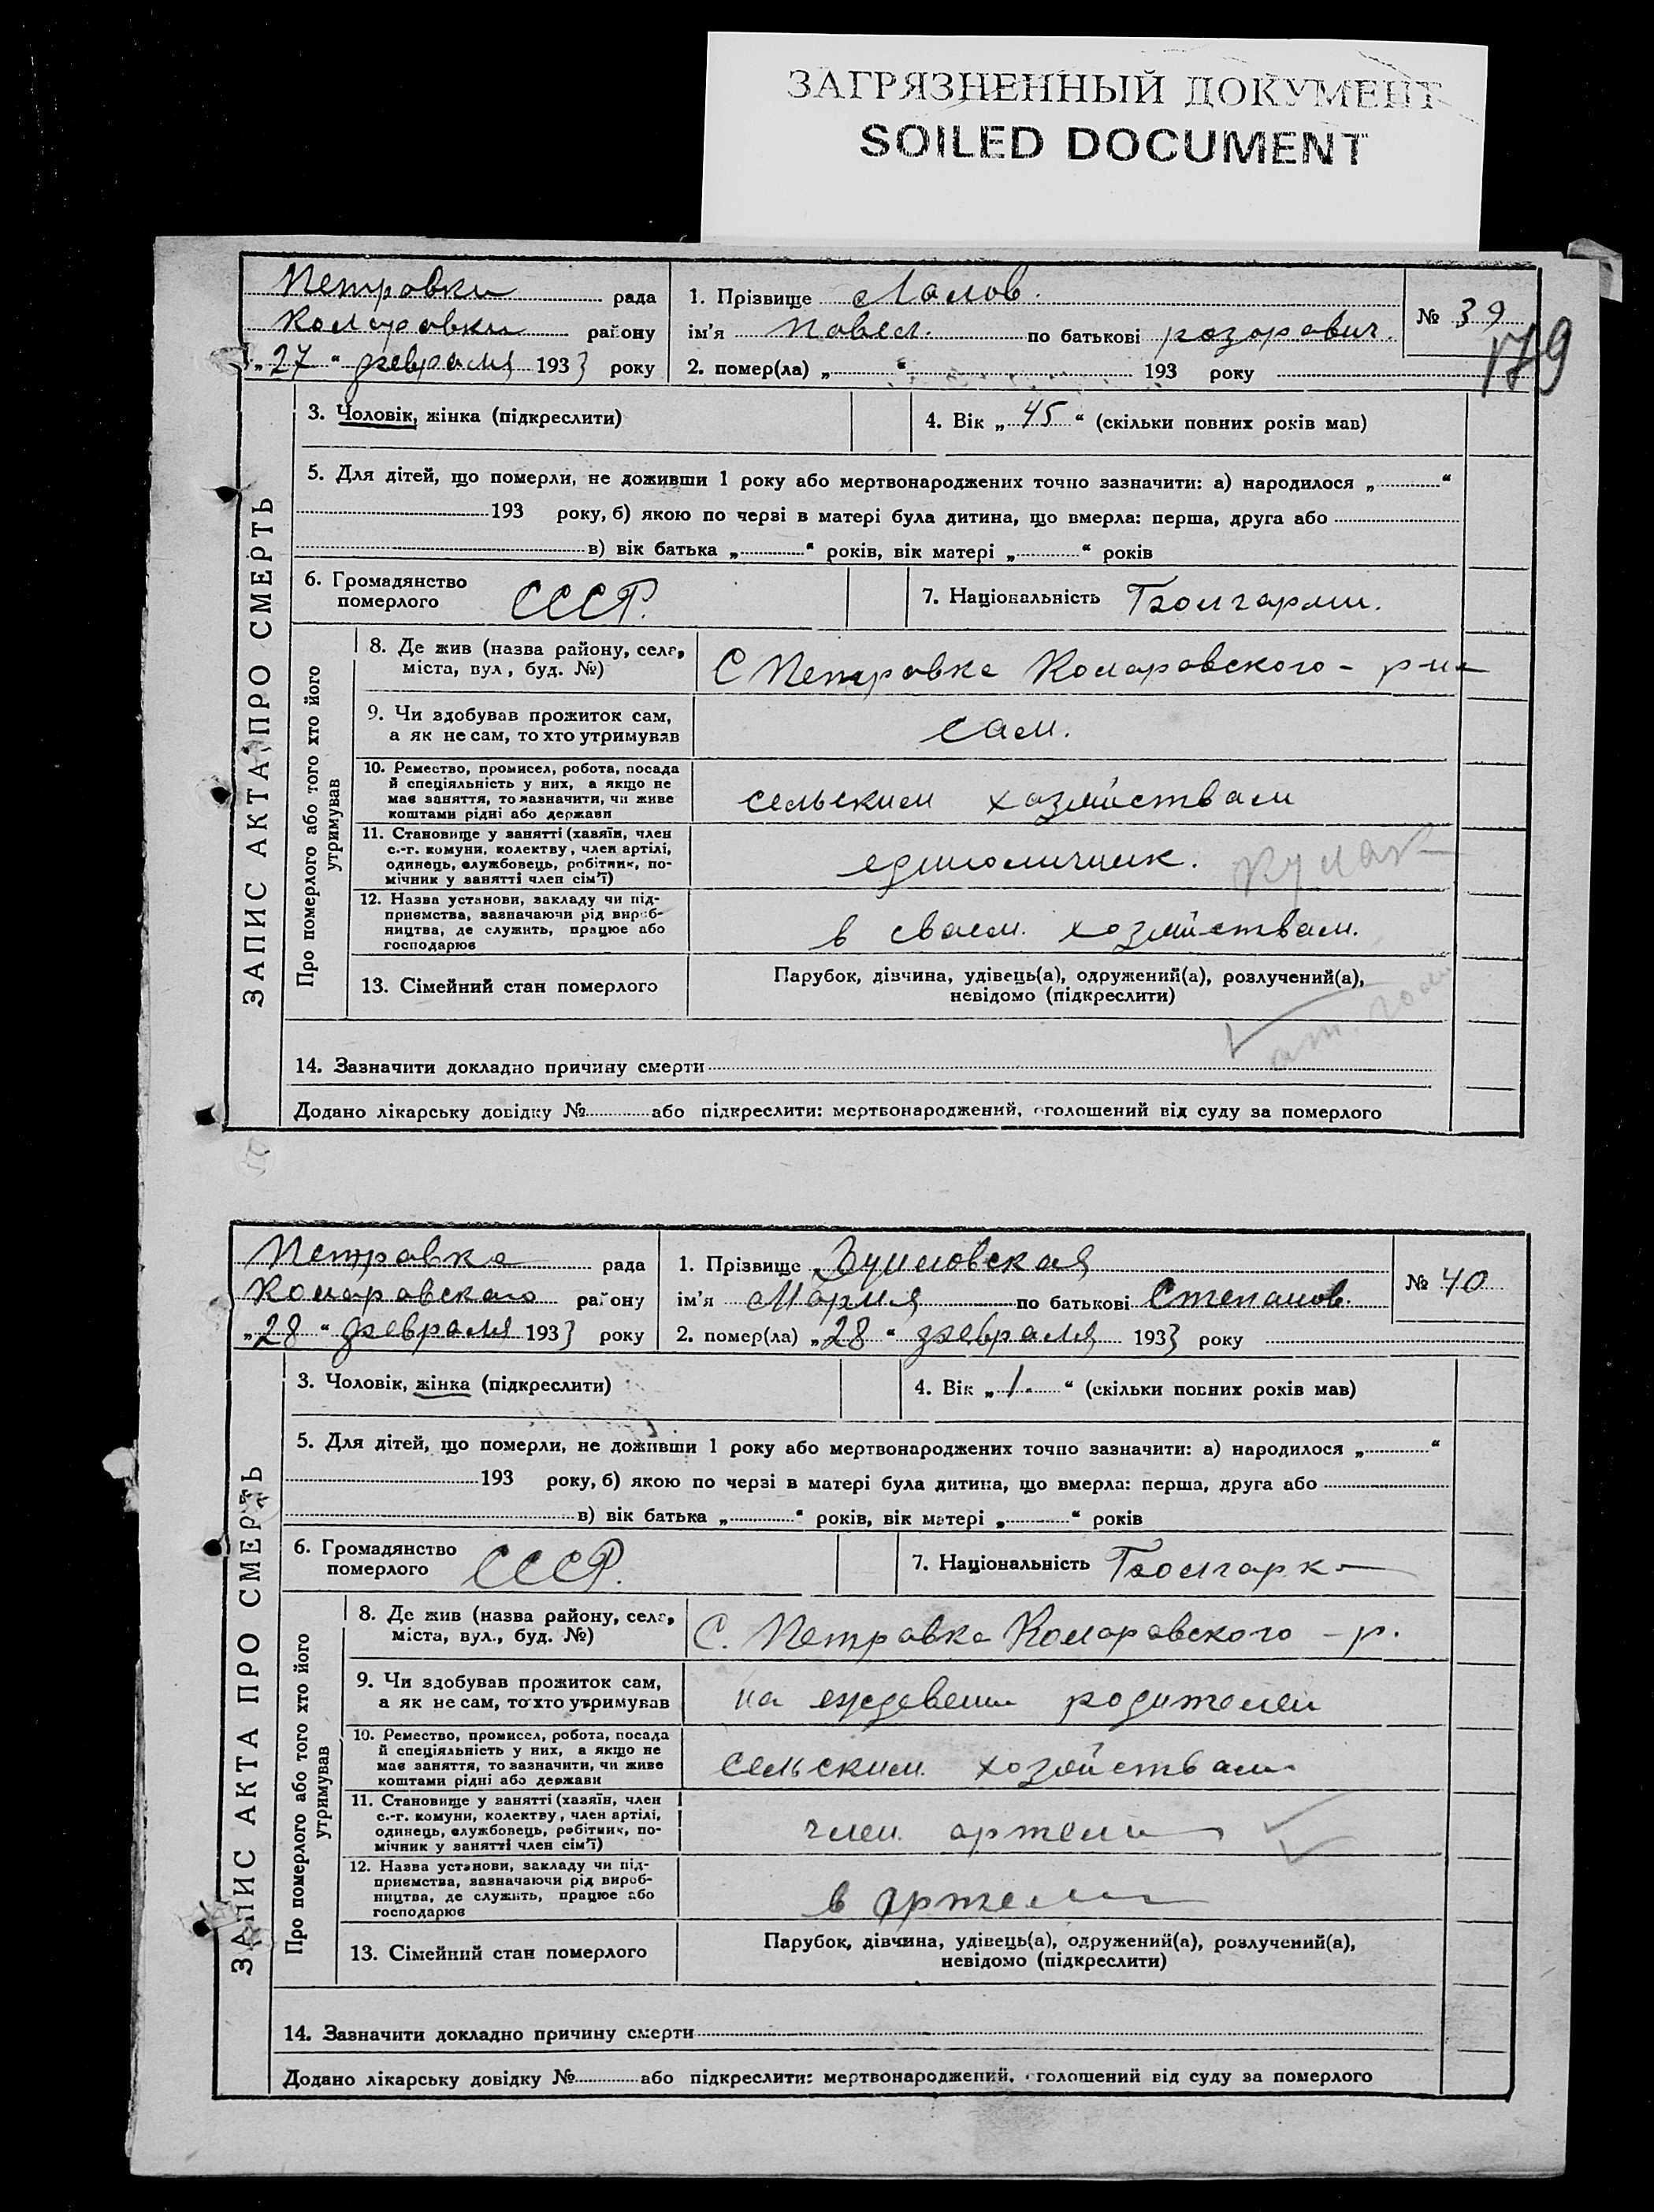 ЗАГРЯЗНЕННЫЙ ДОКУМЕНТ
SOILED DOCUMENT
179
ЗАПИС АКТА ПРО СМЕРТЬ
Петровки рада
Комаровки району
„27“ февраля 1933 року
1. Прізвище Лалов.
ім'я Павел. по батькові
2. помер(ла) „ “ 193 року
№ 39
3. Чоловік, жінка (підкреслити)
4. Вік „45“ (скільки повних років мав)
5. Для дітей, що померли, не доживши 1 року або мертвонароджених точно зазначити: а) народилося „ “
193 року, б) якою по черзі в матері була дитина, що вмерла: перша, друга або
в) вік батька „ “ років, вік матері „ “ років
6. Громадянство
померлого СССР.
7. Національність
Про померлого або того хто його
утримував
8. Де жив (назва району, села,
міста, вул, буд. №)
С Петровка Комаровского - р-на
9. Чи здобував прожиток сам,
а як не сам, то хто утримував
сам.
10. Ремество, промисел, робота, посада
й спеціяльність у них, а якщо не
має заняття, то зазначити, чи живе
коштами рідні або держави
сельским хазяйствам
11. Становище у занятті (хазяїн, член
с.-г. комуни, колективу, член артілі,
одинець, службовець, робітник, по-
мічник у занятті член сім'ї)
единоличник. кулак
12. Назва установи, закладу чи під-
приємства, зазначаючи рід вироб-
ництва, де служить, працює або
господарює
в сваем. хозяйствам.
13. Сімейний стан померлого
Парубок, дівчина, удівець(а), одружений(а), розлучений(а),
невідомо (підкреслити)
14. Зазначити докладно причину смерти
Додано лікарську довідку № або підкреслити: мертвонароджений, оголошений від суду за померлого
ЗАПИС АКТА ПРО СМЕРТЬ
Петравка рада
Комаровскаго району
„28“ февраля 1933 року
1. Прізвище
ім'я Мария по батькові Степанов.
2. помер(ла) „28“ февраля 1933 року
№ 40
3. Чоловік, жінка (підкреслити)
4. Вік „1.“ (скільки повних років мав)
5. Для дітей, що померли, не доживши 1 року або мертвонароджених точно зазначити: а) народилося „ “
193 року, б) якою по черзі в матері була дитина, що вмерла: перша, друга або
в) вік батька „ “ років, вік матері „ “ років
6. Громадянство
померлого СССР.
7. Національність Болгарка
Про померлого або того хто його
утримував
8. Де жив (назва району, села,
міста, вул., буд. №)
С. Петравка Комаравского - р.
9. Чи здобував прожиток сам,
а як не сам, то хто утримував
на еждевени родителеи
10. Ремество, промисел, робота, посада
й спеціяльність у них, а якщо не
має заняття, то зазначити, чи живе
коштами рідні або держави
сельским хозяйствам
11. Становище у занятті (хазяїн, член
с.-г. комуни, колективу, член артілі,
одинець, службовець, робітник, по-
мічник у занятті член сім'ї)
член артели
12. Назва установи, закладу чи під-
приємства, зазначаючи рід вироб-
ництва, де служить, працює або
господарює
в артели
13. Сімейний стан померлого
Парубок, дівчина, удівець(а), одружений(а), розлучений(а),
невідомо (підкреслити)
14. Зазначити докладно причину смерти
Додано лікарську довідку № або підкреслити: мертвонароджений, оголошений від суду за померлого